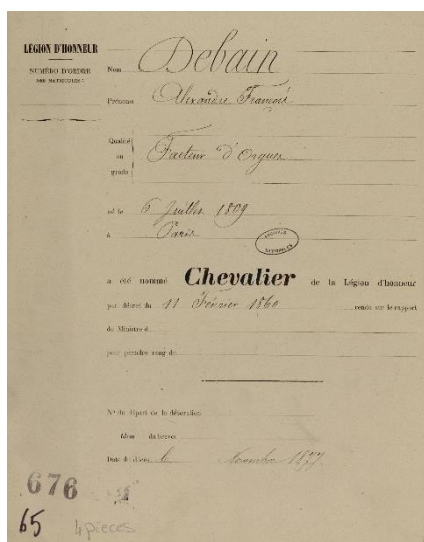 LÉGION D'HONNEUR
NUMÉRO D'ORDRE
DES MATRICULES
Nom Debain
Prénoms Alexandre François
Qualité ou grade Facteur d'Orgues
né le 6 Juillet 1809
à Paris
a été nommé Chevalier de la Légion d'honneur
par décret du 11 Février 1860 rendu sur le rapport
du Ministre d
pour prendre rang du
N° du départ de la décoration
Idem du brevet
Date du décès le Novembre 1877
676
65 4 pieces